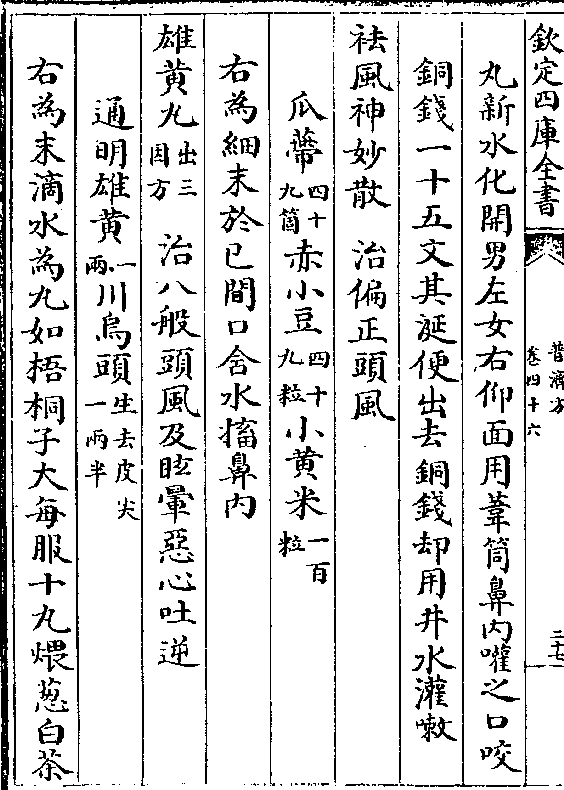 欽定四庫全書
普濟方
卷四十六
三十七
丸新水化開男左女右仰面用葦筒鼻內嚾之口咬
銅錢一十五文其涎便出去銅錢却用井水灌嗽
祛風神妙散 治偏正頭風
瓜蔕四十九箇赤小豆四十九粒小黄米一百粒
右為細末於巳間口含水搐鼻內
雄黄丸出三因方 治八般頭風及眩暈惡心吐逆
通明雄黄一兩川烏頭生去皮尖一兩半
右為末滴水為丸如梧桐子大每服十丸煨葱白茶